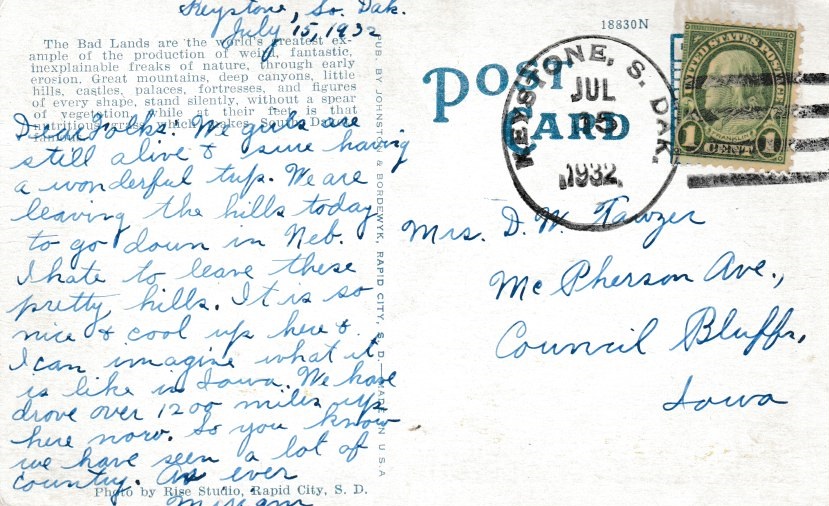 Keystone, So. Dak.
July 15, 1932
18830N
The Bad Lands are the world's greatest ex-
ample of the production of weird, fantastic,
inexplainable freaks of nature, through early
erosion. Great mountains, deep canyons, little
hills, castles, palaces, fortresses, and figures
of every shape, stand silently, without a spear
of vegetation, while at their feet is that
nutritious grass which makes South Dakota
Dear Folks: We girls are
still alive & sure having
a wonderful trip. We are
leaving the hills today
to go down in Neb.
I hate to leave these
pretty hills. It is so
nice & cool up here &
I can imagine what it
is like in Iowa. We have
drove over 1200 miles up
here now. So you know
we have seen a lot of
country. As ever
Miriam
Photo by Rise Studio, Rapid City, S. D.
PUB. BY JOHNSTON & BORDEWYK, RAPID CITY, S. D.—MADE IN USA
POST
CARD
KEYSTONE, S. DAK.
JUL
15
1932
UNITED STATES POSTAGE
FRANKLIN
1 CENT 1
Mrs. D. W. Tawzer
McPherson Ave.,
Council Bluffs,
Iowa